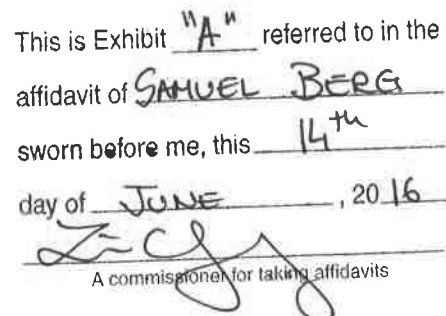 This is Exhibit "A" referred to in the
affidavit of SAMUEL BERG
sworn before me, this 14th
day of JUNE, 2016
A commissioner for taking affidavits